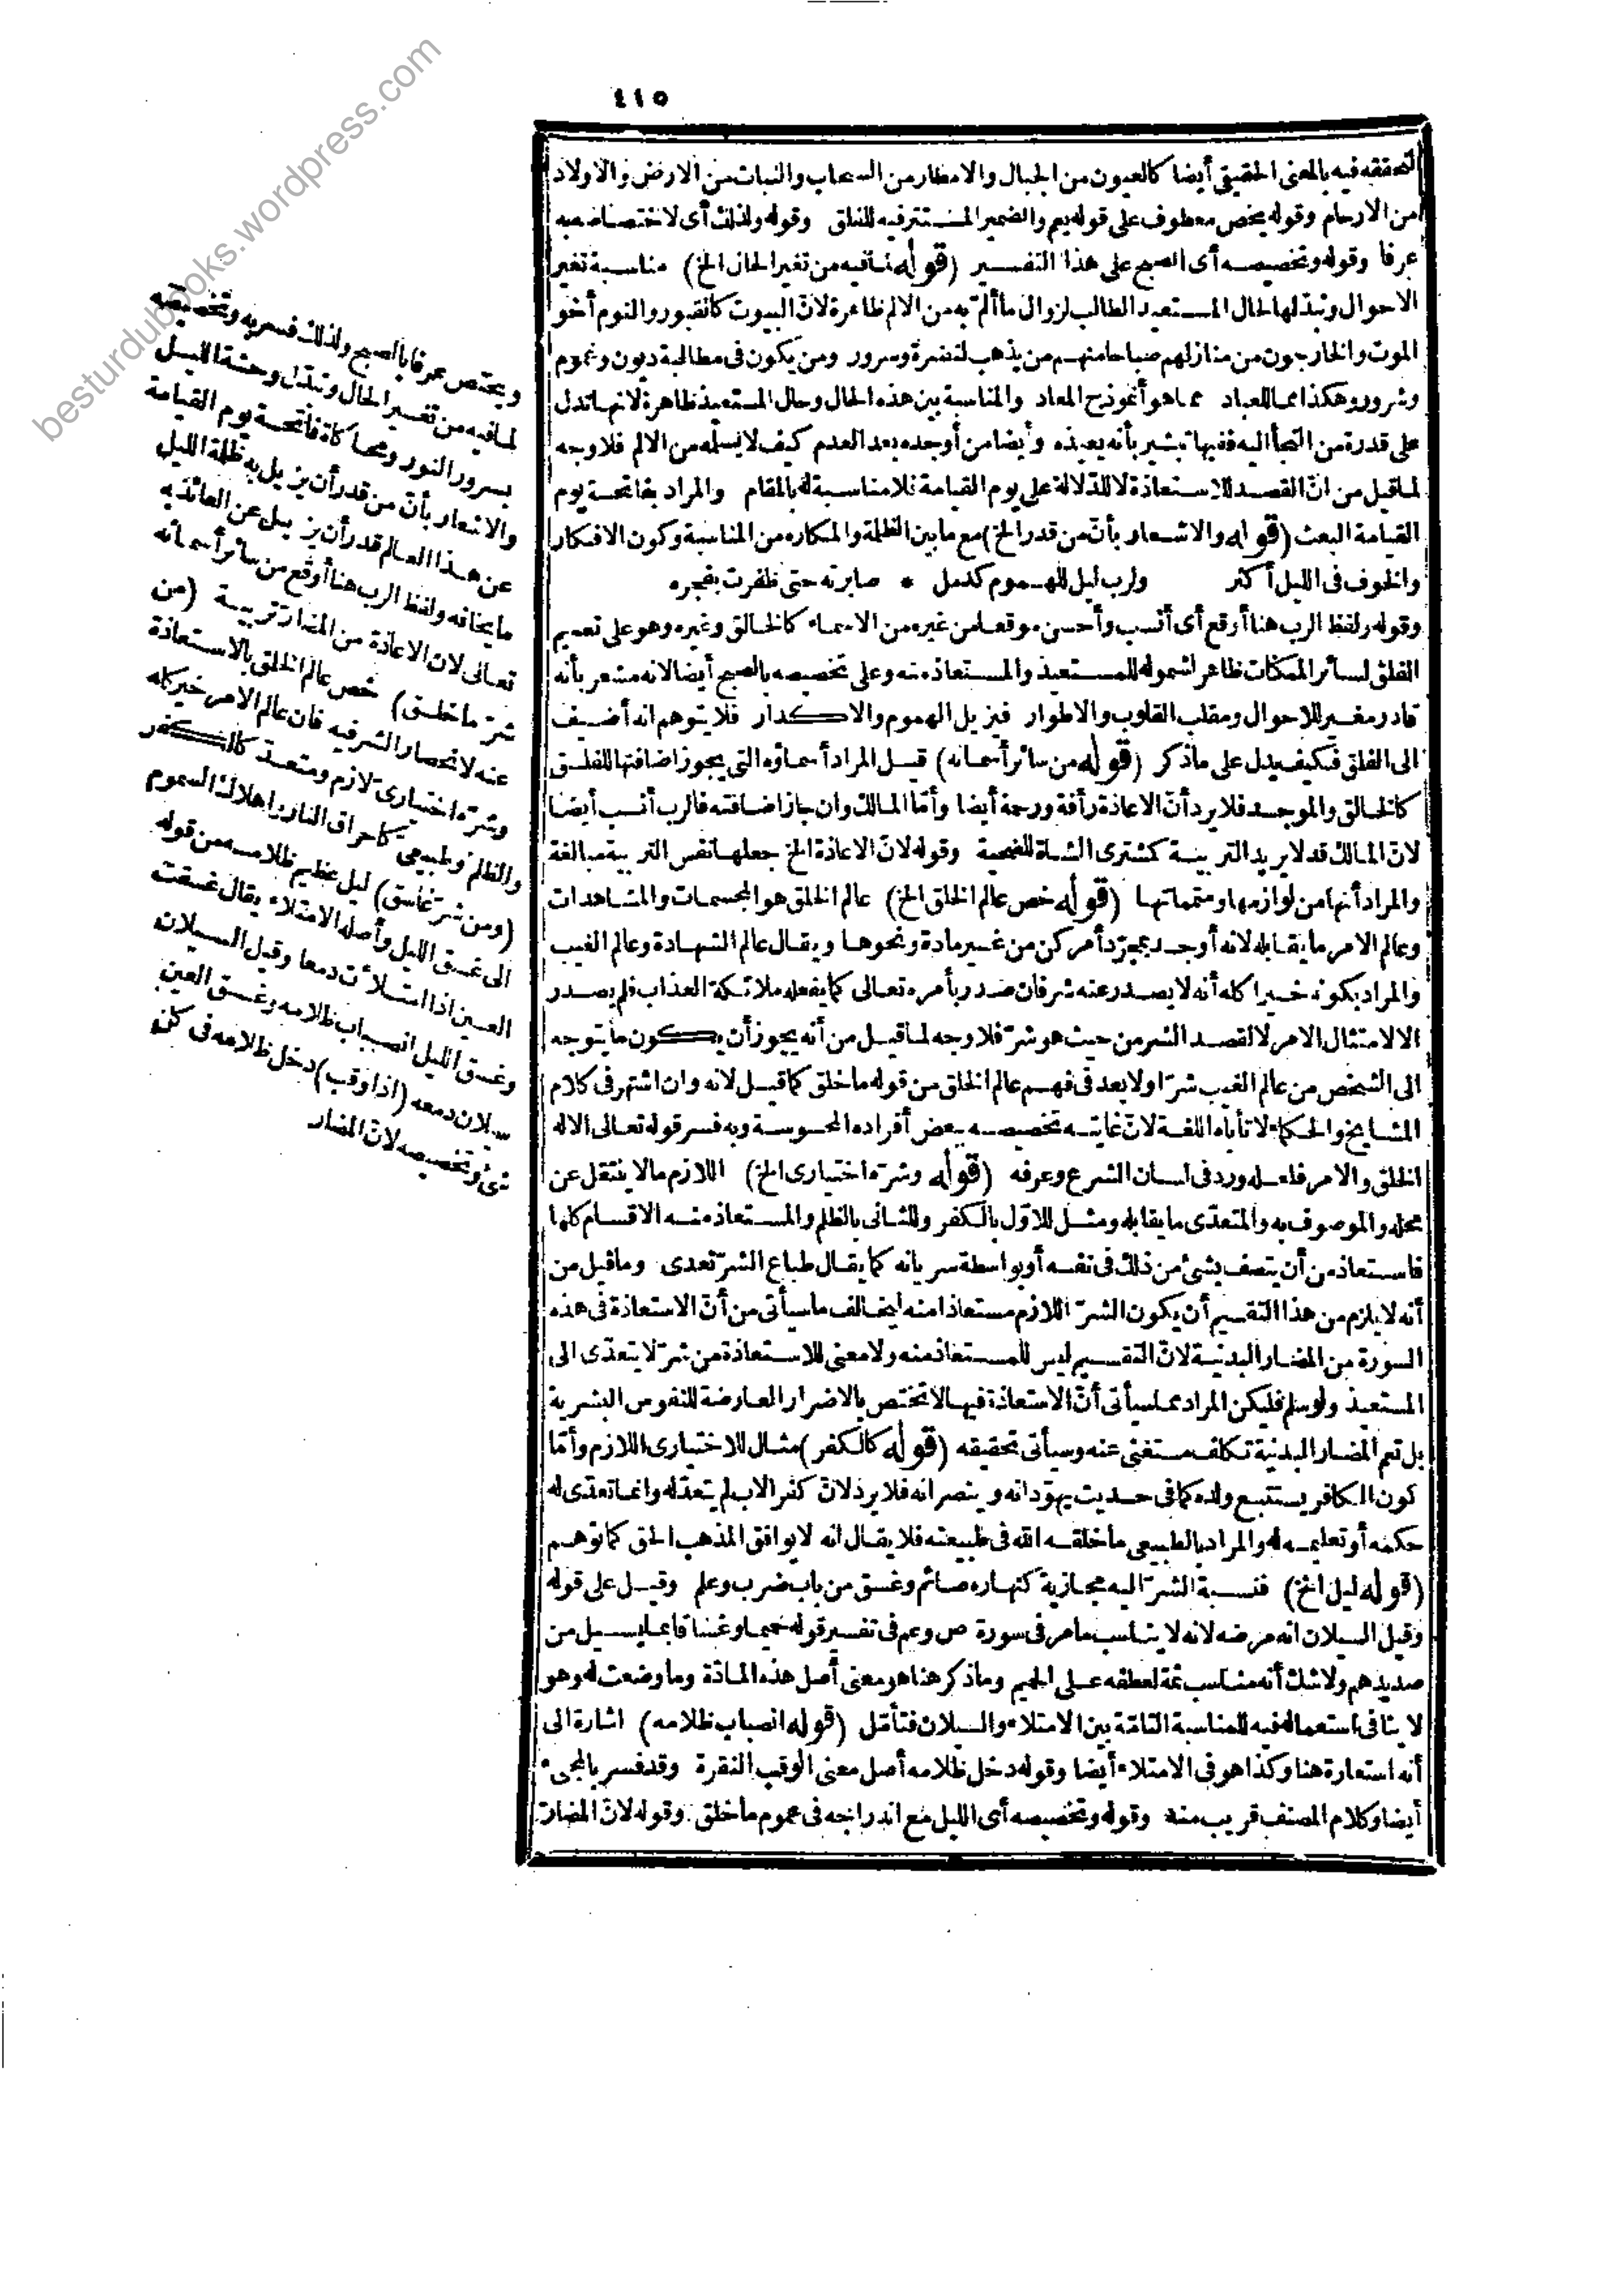 ٤١٥
لتحققه فيه بالمعنى الحقيقي أيضا كالعيون من الجبال والامطار من السحاب والنبات من الارض والاولاد
من الارحام وقوله يخص معطوف على قوله يعم والضمير المستتر فيه للفلق وقوله ولذلك أى لاختصاصه به
عرفا وقوله وتخصيصه أى الصبح على هذا التفسير (قوله لما فيه من تغير الحال الخ) مناسبة تغير
الاحوال وتبدلها لحال المستعيذ الطالب لزوال ما ألم به من الالم ظاهرة لان البيوت كالقبور والنوم أخو
الموت والخارجون من منازلهم صباحا منهم من يذهب لنضرة وسرور ومن يكون فى مطالبة ديون وغموم
وشرور وهكذا مما للعباد مما هو أنموذج المعاد والمناسبة بين هذه الحال وحال المستعيذ ظاهرة لانها تدل
على قدرة من التجأ اليه ففيها تبشير بأنه يعيذه وأيضا من أوجده بعد العدم كيف لا يسلمه من الالم فلا وجه
لما قيل من ان القصد للاستعاذة لا للدلالة على يوم القيامة فلا مناسبة له بالمقام والمراد بفاتحة يوم
القيامة البعث (قوله والاشعار بأن من قدر الخ) مع ما بين الظلمة والمكاره من المناسبة وكون الافكار
والخوف فى الليل أكثر ولرب ليل للهموم كدمل * صابرته حتى ظفرت بفجره
وقوله ولفظ الرب هنا أوقع أى أنسب وأحسن موقعا من غيره من الاسماء كالخالق وغيره وهو على تعميم
الفلق لسائر الممكنات ظاهر لشموله للمستعيذ والمستعاذ منه وعلى تخصيصه بالصبح أيضا لانه مشعر بأنه
قادر مغير للاحوال ومقلب القلوب والاطوار فيزيل الهموم والاكدار فلا يتوهم انه أضيف
الى الفلق فكيف يدل على ما ذكر (قوله من سائر أسمائه) قيل المراد أسماؤه التى يجوز اضافتها للفلق
كالخالق والموجد فلا يرد أن الاعاذة رأفة ورحمة أيضا وأما المالك وان جاز اضافته فالرب أنسب أيضا
لان المالك قد لا يريد التربية كمشترى الشاة للضحية وقوله لان الاعاذة الخ جعلها نفس التربية مبالغة
والمراد أنها من لوازمها ومتمماتها (قوله خص عالم الخلق الخ) عالم الخلق هو المجسمات والمشاهدات
وعالم الامر ما يقابله لانه أوجد بمجرد أمر كن من غير مادة ونحوها ويقال عالم الشهادة وعالم الغيب
والمراد بكونه خيرا كله أنه لا يصدر عنه شر فان صدر بأمره تعالى كما يفعله ملائكة العذاب فلم يصدر
الا لامتثال الامر لا لقصد الشر من حيث هو شر فلا وجه لما قيل من أنه يجوز أن يكون ما يتوجه
الى الشخص من عالم الغيب شرا ولا بعد فى فهم عالم الخلق من قوله ما خلق كما قيل لانه وان اشتهر فى كلام
المشايخ والحكماء لا تأباه اللغة لان غايته تخصيصه ببعض أفراده المحسوسة وبه فسر قوله تعالى الا له
الخلق والامر فلعله ورد فى لسان الشرع وعرفه (قوله وشره اختيارى الخ) اللازم ما لا ينتقل عن
محله والموصوف به والمتعدى ما يقابله ومثل للاول بالكفر وللثانى بالظلم والمستعاذ منه الاقسام كلها
فاستعاذ من أن يتصف بشئ من ذلك فى نفسه أو بواسطة سريانه كما يقال طباع الشر تعدى وما قيل من
أنه لا يلزم من هذا التقسيم أن يكون الشر اللازم مستعاذا منه ليخالف ما سيأتى من أن الاستعاذة فى هذه
السورة من المضار البدنية لان التقسيم ليس للمستعاذ منه ولا معنى للاستعاذة من شر لا يتعدى الى
المستعيذ ولو سلم فليكن المراد مما سيأتى أن الاستعاذة فيها لا تختص بالاضرار العارضة للنفوس البشرية
بل تعم المضار البدنية تكلف مستغنى عنه وسيأتى تحقيقه (قوله كالكفر) مثال للاختيارى اللازم وأما
كون الكافر يستتبع ولده كما فى حديث يهودانه وينصرانه فلا يرد لان كفر الاب لم يتعد له وانما تعدى له
حكمه أو تعليمه له والمراد بالطبيعى ما خلقه الله فى طبيعته فلا يقال انه لا يوافق المذهب الحق كما توهم
(قوله ليل الخ) فنسبة الشر اليه مجازية كنهاره صائم وغسق من باب ضرب وعلم وقيل على قوله
وقيل السيلان انه مرضه لانه لا يناسب ما مر فى سورة ص وعم فى تفسير قوله حميما وغساقا بما يسيل من
صديدهم ولا شك أنه مناسب ثمة لعطفه على الحميم وما ذكر هنا هو معنى أصل هذه المادة وما وضعت له وهو
لا ينافى استعماله فيه للمناسبة التامة بين الامتلاء والسيلان فتأمل (قوله انصباب ظلامه) اشارة الى
أنه استعارة هنا وكذا هو فى الامتلاء أيضا وقوله دخل ظلامه أصل معنى الوقب النقرة وقد فسر بالمجىء
أيضا وكلام المصنف قريب منه وقوله وتخصيصه أى الليل مع اندراجه فى عموم ما خلق وقوله لان المضار
ويختص عرفا بالصبح ولذلك فسر به وتخصيصه
لما فيه من تغير الحال وتبدل وحشة الليل
بسرور النور ومحاكاة فاتحة يوم القيامة
والاشعار بأن من قدر أن يزيل به ظلمة الليل
عن هذا العالم قدر أن يزيل عن العائذ به
ما يخافه ولفظ الرب هنا أوقع من سائر أسمائه
تعالى لان الاعاذة من المضار تربية (من
شر ما خلق) خص عالم الخلق بالاستعاذة
عنه لانحصار الشر فيه فان عالم الامر خير كله
وشره اختيارى لازم ومتعد كالكفر
والظلم وطبيعي كاحراق النار واهلاك السموم
(ومن شر غاسق) ليل عظيم ظلامه من قوله
الى غسق الليل وأصله الامتلاء يقال غسقت
العين اذا امتلأت دمعا وقيل السيلان
وغسق الليل انصباب ظلامه وغسق العين
سيلان دمعه (اذا وقب) دخل ظلامه فى كل
شئ وتخصيصه لان المضار
besturdubooks.wordpress.com